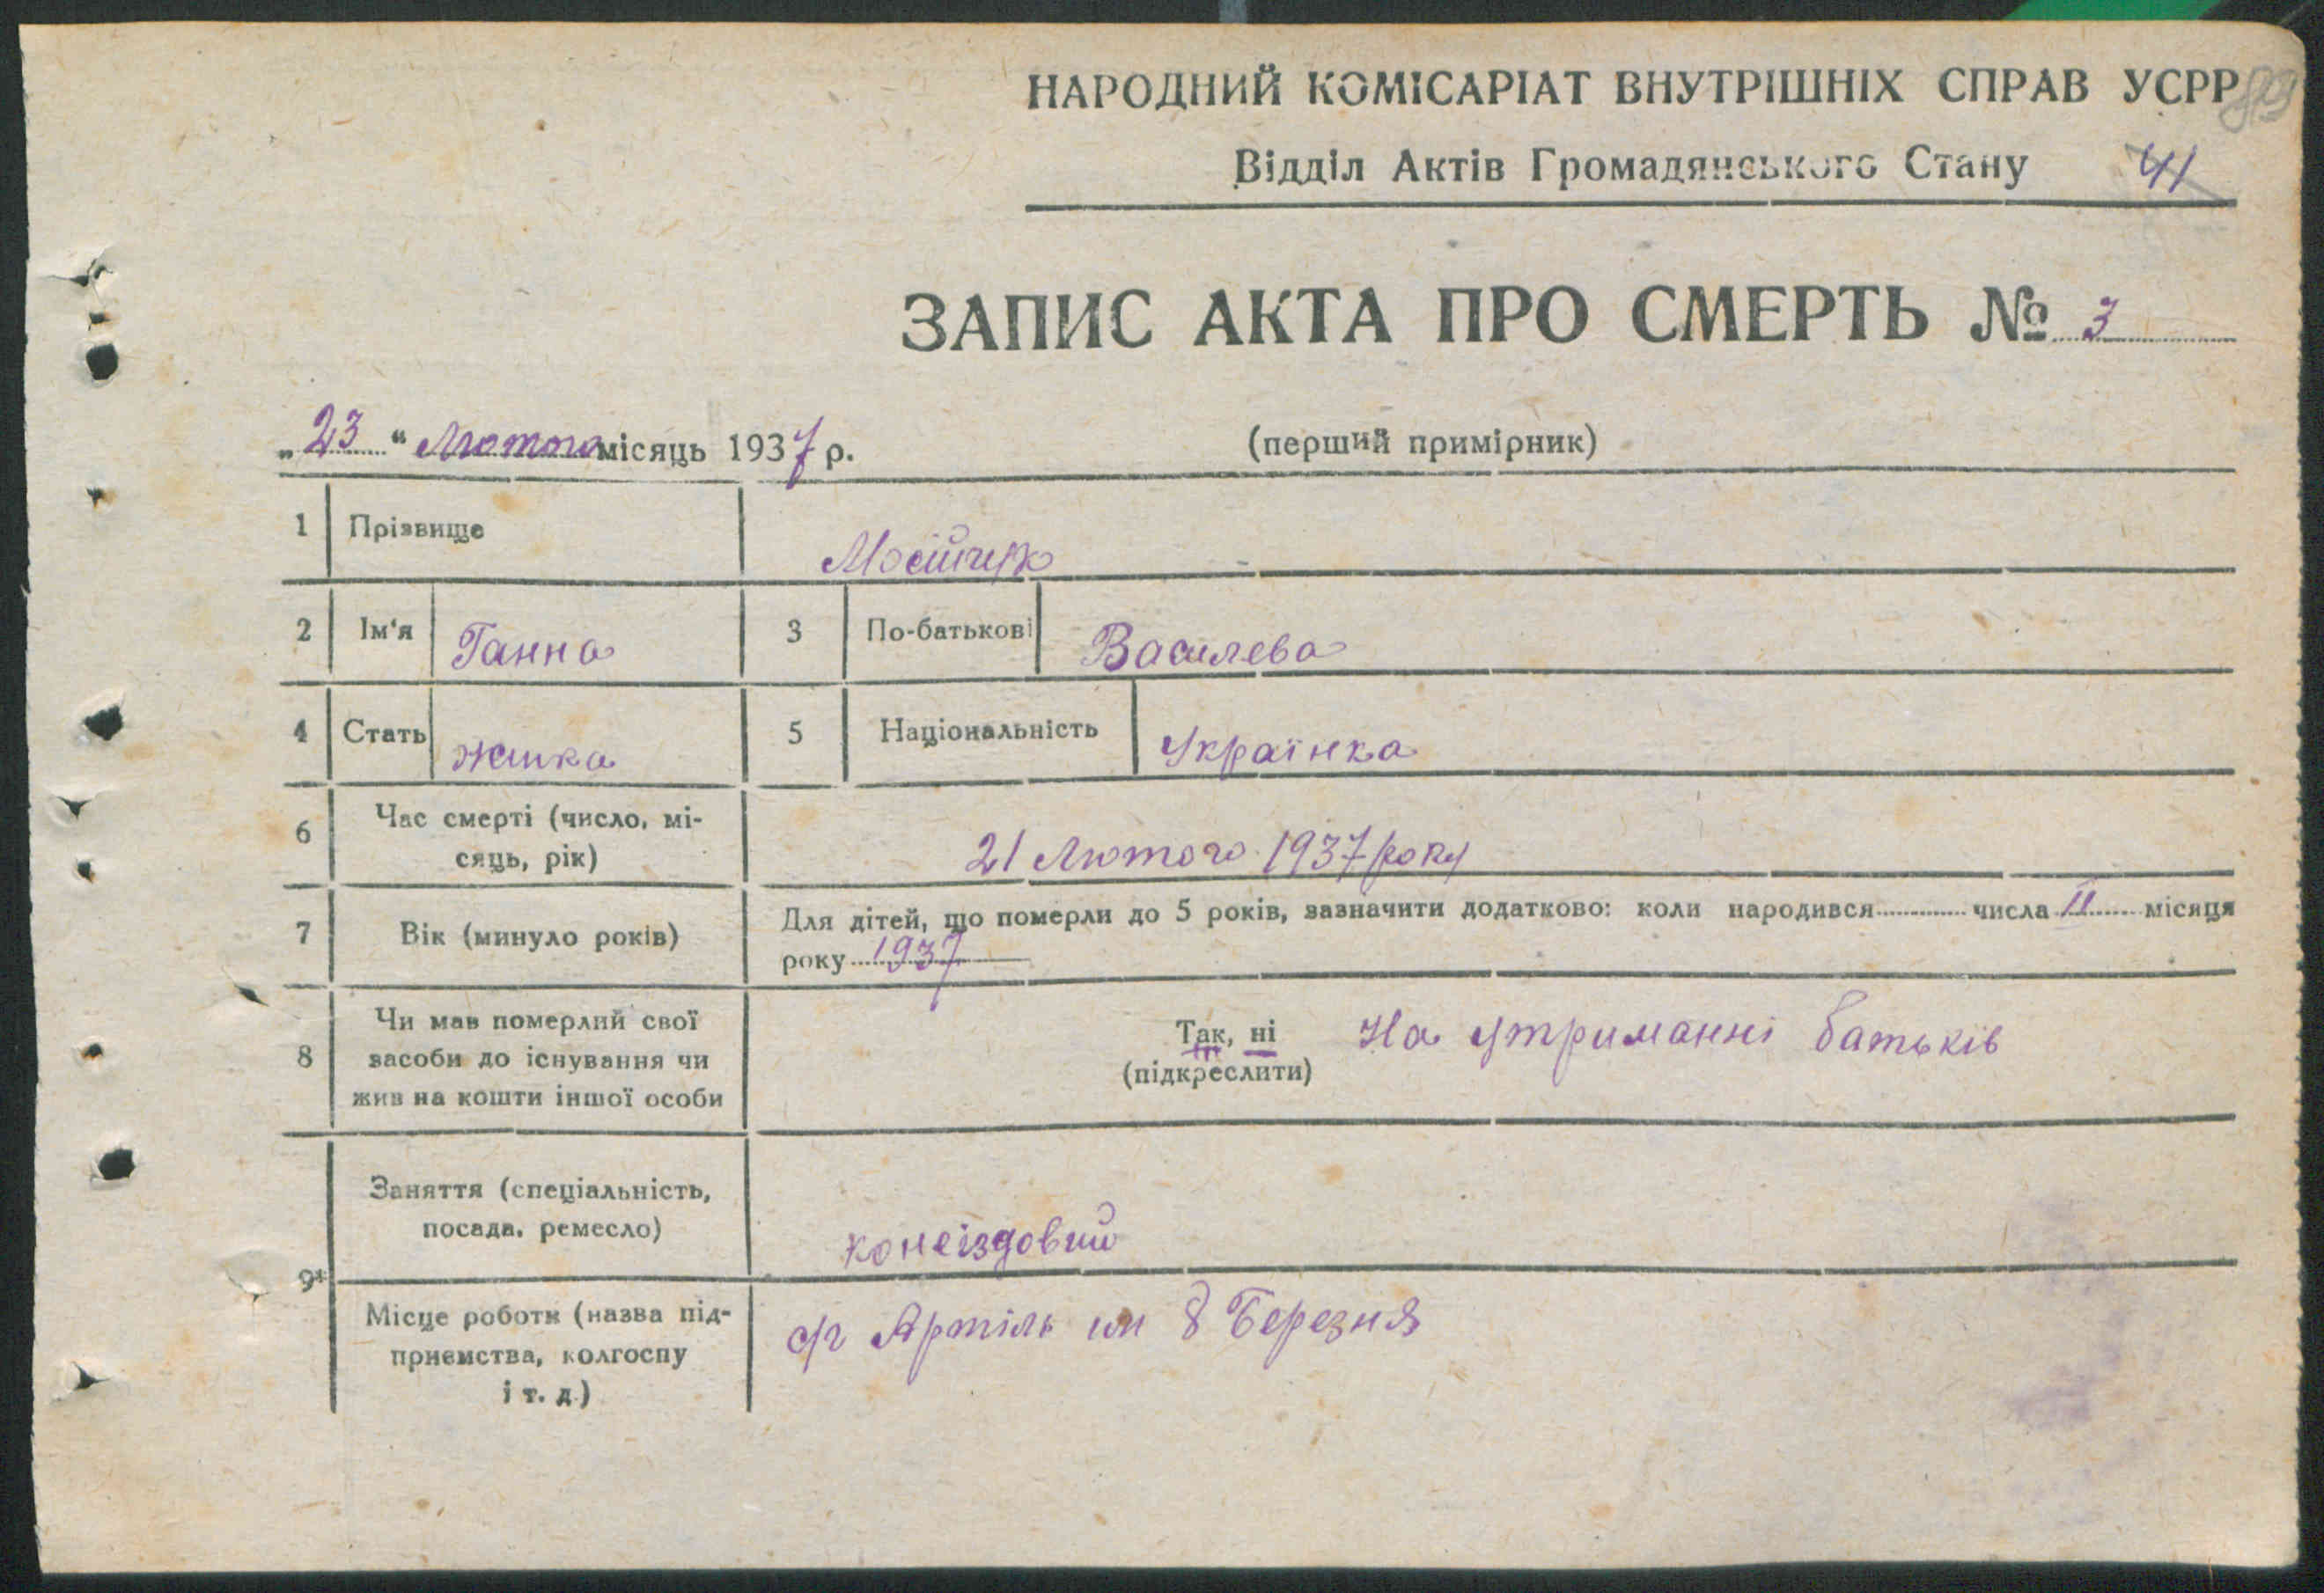 НАРОДНИЙ КОМІСАРІАТ ВНУТРІШНІХ СПРАВ УСРР
Відділ Актів Громадянського Стану 41
ЗАПИС АКТА ПРО СМЕРТЬ № 3
„23“ Лютого місяць 1937 р. (перший примірник)
1 Прізвище Мосійчук
2 Ім‘я Ганна 3 По-батькові Василева
4 Стать жінка 5 Національність Українка
6 Час смерті (число, мі-
сяць, рік) 21 Лютого 1937 року
7 Вік (минуло років) Для дітей, що померли до 5 років, зазначити додатково: коли народився числа II місяця
року 1937
8 Чи мав померлий свої
засоби до існування чи
жив на кошти іншої особи
Так, ні На утриманні батьків
(підкреслити)
9* Заняття (спеціальність,
посада, ремесло) конеіздовий
Місце роботи (назва під-
приємства, колгоспу
і т. д.)
с/г Артіль им 8 Березня